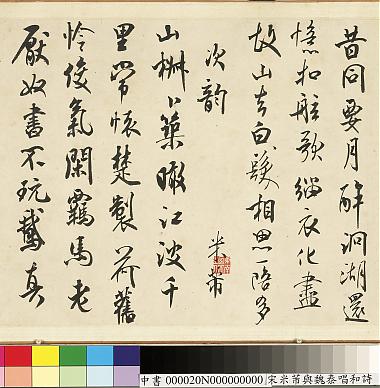 昔同要月醉洞湖還
憶扣舷歌緇衣化盡
故山去白髮相思一陪多
米芾
次韵
山椒卜築瞰江波千
里常懷楚製荷舊
怜俊氣閑羈馬老
厭奴書不玩鵝真
中書 000020N000000000 宋米芾與魏泰唱和詩